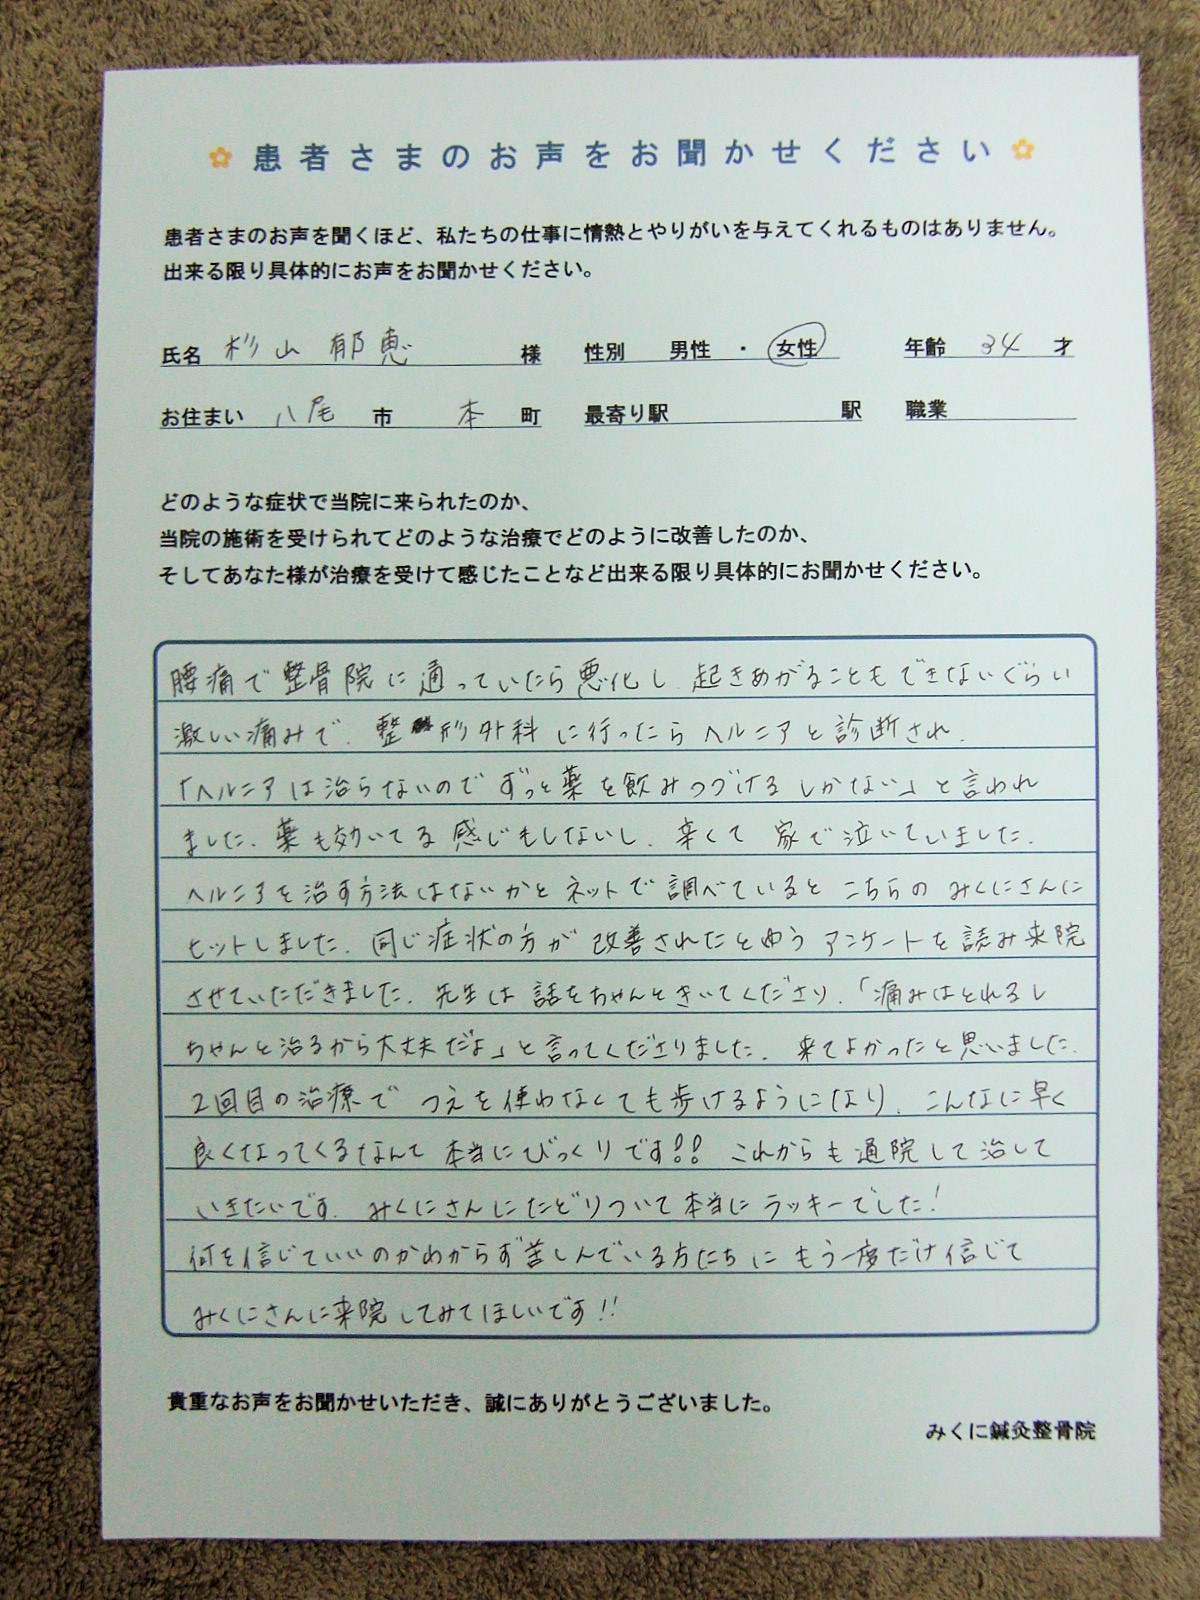 患者さまのお声をお聞かせください
患者さまのお声を聞くほど、私たちの仕事に情熱とやりがいを与えてくれるものはありません。
出来る限り具体的にお声をお聞かせください。
氏名 杉山 郁恵 様 性別 男性 ・ 女性 年齢 34 才
お住まい 八尾 市 本 町 最寄り駅 駅 職業
どのような症状で当院に来られたのか、
当院の施術を受けられてどのような治療でどのように改善したのか、
そしてあなた様が治療を受けて感じたことなど出来る限り具体的にお聞かせください。
腰痛で整骨院に通っていたら悪化し、起きあがることもできないぐらい
激しい痛みで、整形外科に行ったらヘルニアと診断され、
「ヘルニアは治らないのでずっと薬を飲みつづけるしかない」と言われ
ました。薬も効いてる感じもしないし、辛くて家で泣いていました。
ヘルニアを治す方法はないかとネットで調べているとこちらのみくにさんに
ヒットしました。同じ症状の方が改善されたとゆうアンケートを読み来院
させていただきました。先生は話をちゃんときいてくださり、「痛みはとれるし
ちゃんと治るから大丈夫だよ」と言ってくださりました。来てよかったと思いました。
2回目の治療でつえを使わなくても歩けるようになり、こんなに早く
良くなってくるなんて本当にびっくりです!! これからも通院して治して
いきたいです。みくにさんにたどりついて本当にラッキーでした!
何を信じていいのかわからず苦しんでいる方たちにもう一度だけ信じて
みくにさんに来院してみてほしいです!!
貴重なお声をお聞かせいただき、誠にありがとうございました。
みくに鍼灸整骨院